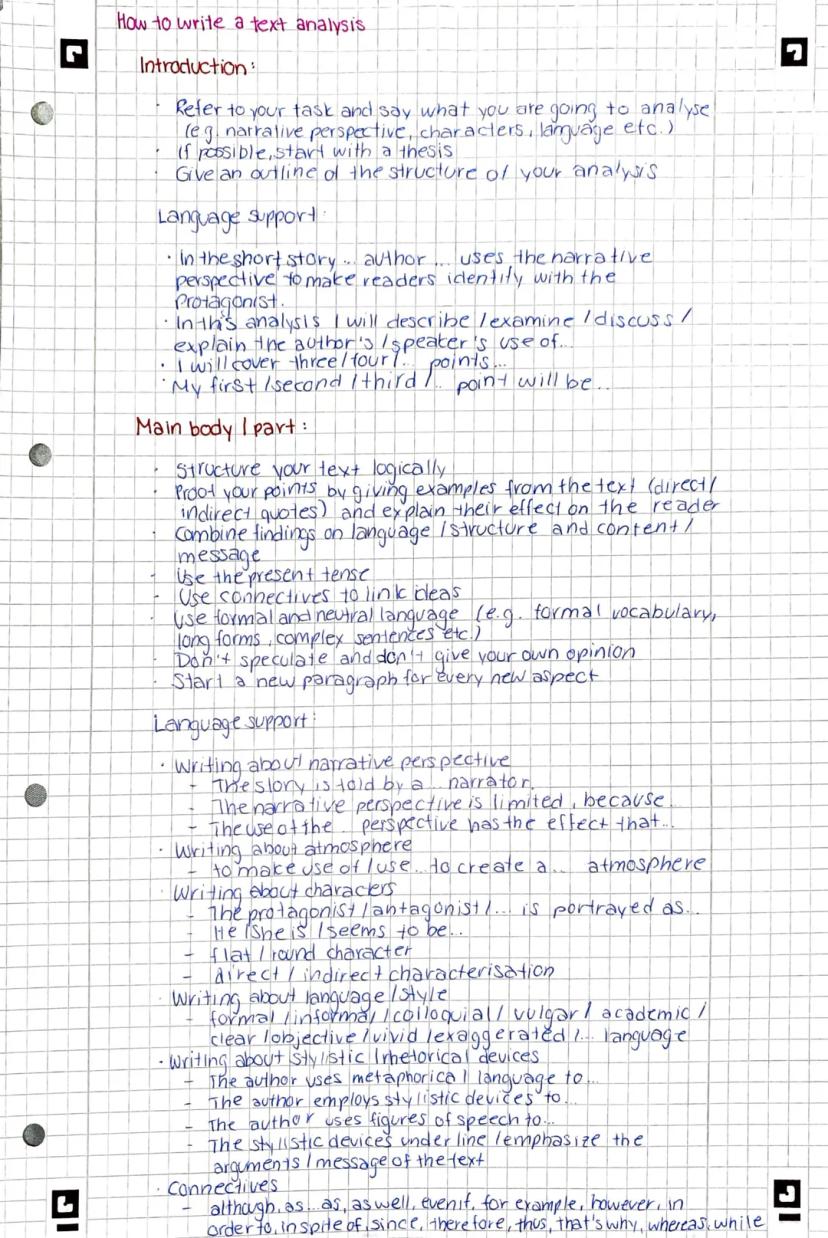 How to write a text analysis
Introduction:
· Refer to your task and say what you are going to analyse
(e.g. narrative perspective, characters, language etc.)
· If possible, start with a thesis
· Give an outline of the structure of your analysis
Language support:
· In the short story ... author ... uses the narrative
perspective to make readers identify with the
Protagonist.
· In this analysis I will describe / examine / discuss /
explain the author's / speaker's use of...
· I will cover three / four /... points...
· My first / second / third /... point will be...
Main body / part:
· Structure your text logically
· Proof your points by giving examples from the text (direct /
indirect quotes) and explain their effect on the reader
· Combine findings on language / structure and content /
message
- Use the present tense
- Use connectives to link ideas
· Use formal and neutral language (e.g. formal vocabulary,
long forms, complex sentences etc.)
· Don't speculate and don't give your own opinion
· Start a new paragraph for every new aspect
Language support:
· Writing about narrative perspective
- The story is told by a ... narrator.
- The narrative perspective is limited, because...
- The use of the ... perspective has the effect that...
· Writing about atmosphere
- to make use of / use... to create a... atmosphere
· Writing about characers
- The protagonist / antagonist /... is portrayed as...
- He / she is / seems to be...
- flat / round character
- direct / indirect characterisation
· Writing about language / style
- formal / informal / colloquial / vulgar / academic /
clear / objective / vivid / exaggerated /... language
· Writing about stylistic / rhetorical devices
- The author uses metaphorical language to...
- The author employs stylistic devices to...
- The author uses figures of speech to...
- The stylistic devices underline / emphasize the
arguments / message of the text
· Connectives
- although, as... as, as well, even if, for example, however, in
order to, in spite of, since, therefore, thus, that's why, whereas, while